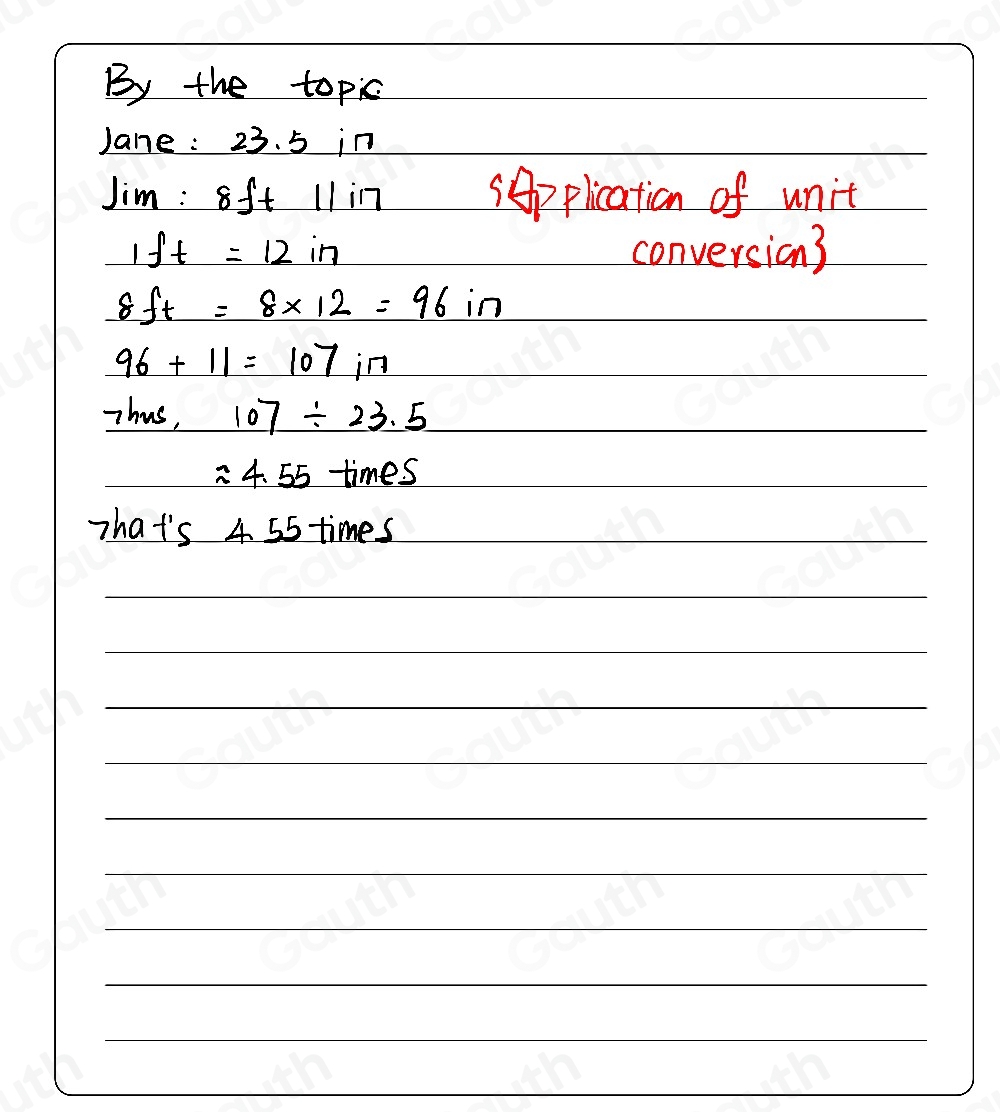 By the topic
Jane: 23.5 in
Jim: 8ft 11 in
{Application of unit
conversion}
1ft = 12 in
8ft = 8×12 = 96 in
96 + 11 = 107 in
Thus, 107 ÷ 23.5
≈ 4.55 times
That's 4.55 times
Gauth